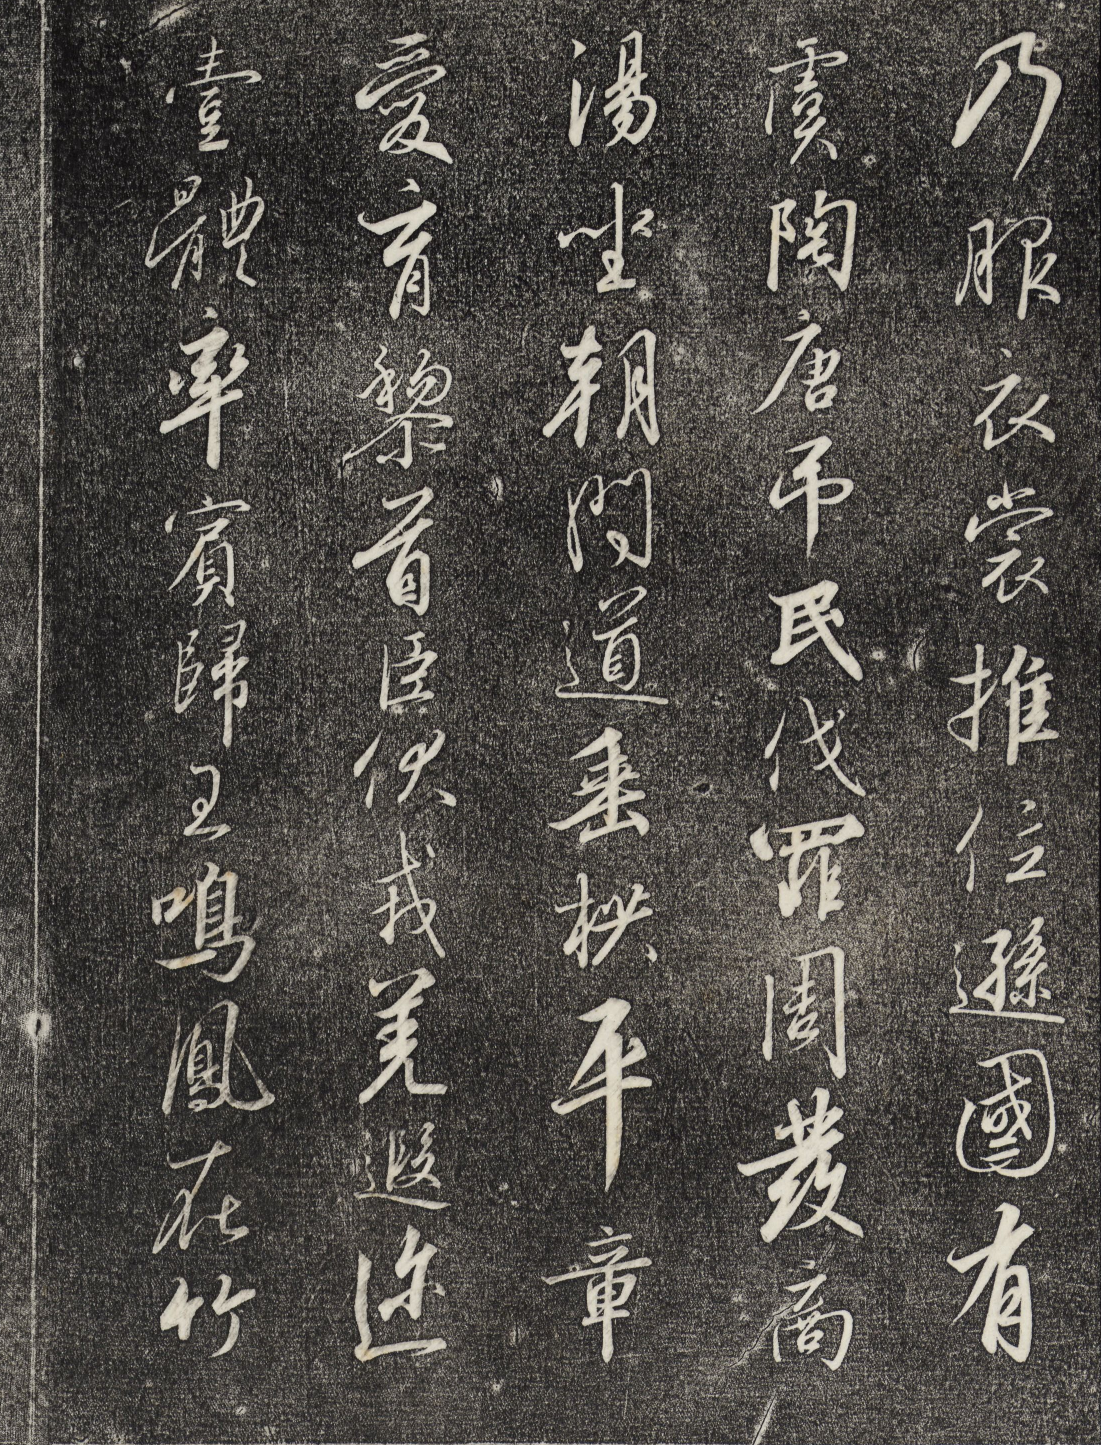 乃服衣裳推位遜國有
虞陶唐弔民伐罪周發商
湯坐朝問道垂拱平章
愛育黎首臣伏戎羌遐迩
壹體率賓歸王鳴鳳在竹